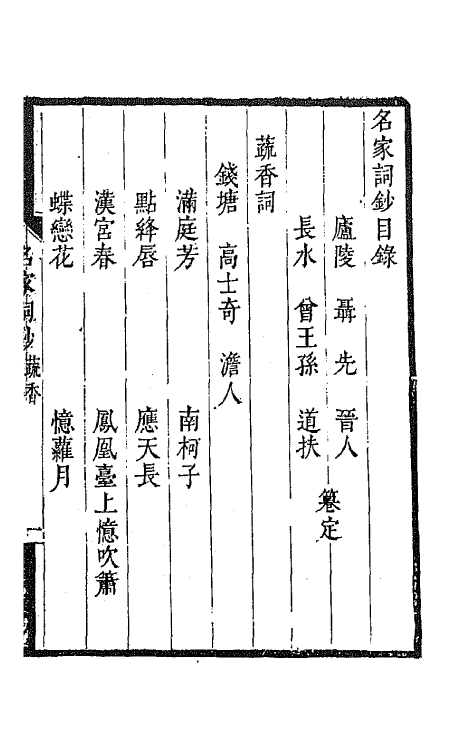 名家詞鈔目錄
廬陵 聶先 晉人
長水 曾王孫 道扶
纂定
蔬香詞
錢塘 高士奇 澹人
滿庭芳 南柯子
點絳唇 應天長
漢宮春 鳳凰臺上憶吹簫
蝶戀花 憶蘿月
名家詞鈔 蔬香 一